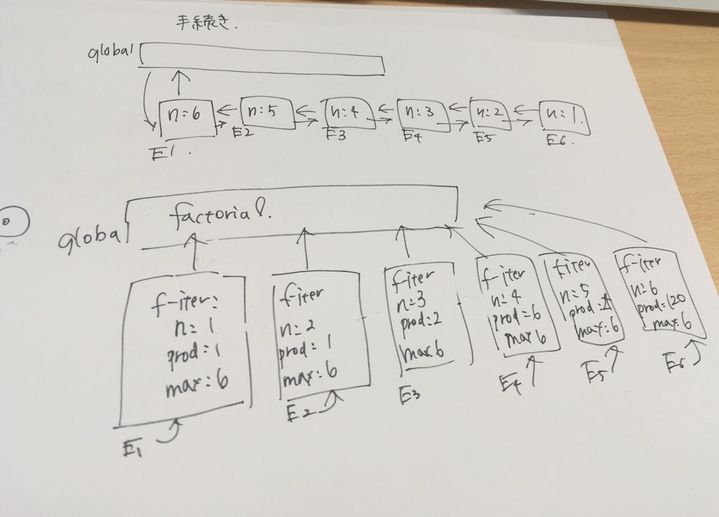 手続き.
global
n=6
n=5
n=4
n=3
n=2
n=1.
E1.
E2
E3
E4
E5
E6.
global
factorial.
f-iter:
n=1
prod=1
max=6
E1
f-iter
n=2
prod=1
max=6
E2
f-iter
n=3
prod=2
max6
E3
f-iter
n=4
prod=6
max6
E4
f-iter
n=5
max=6
E5
f-iter
n=6
prod=120
max=6
E6